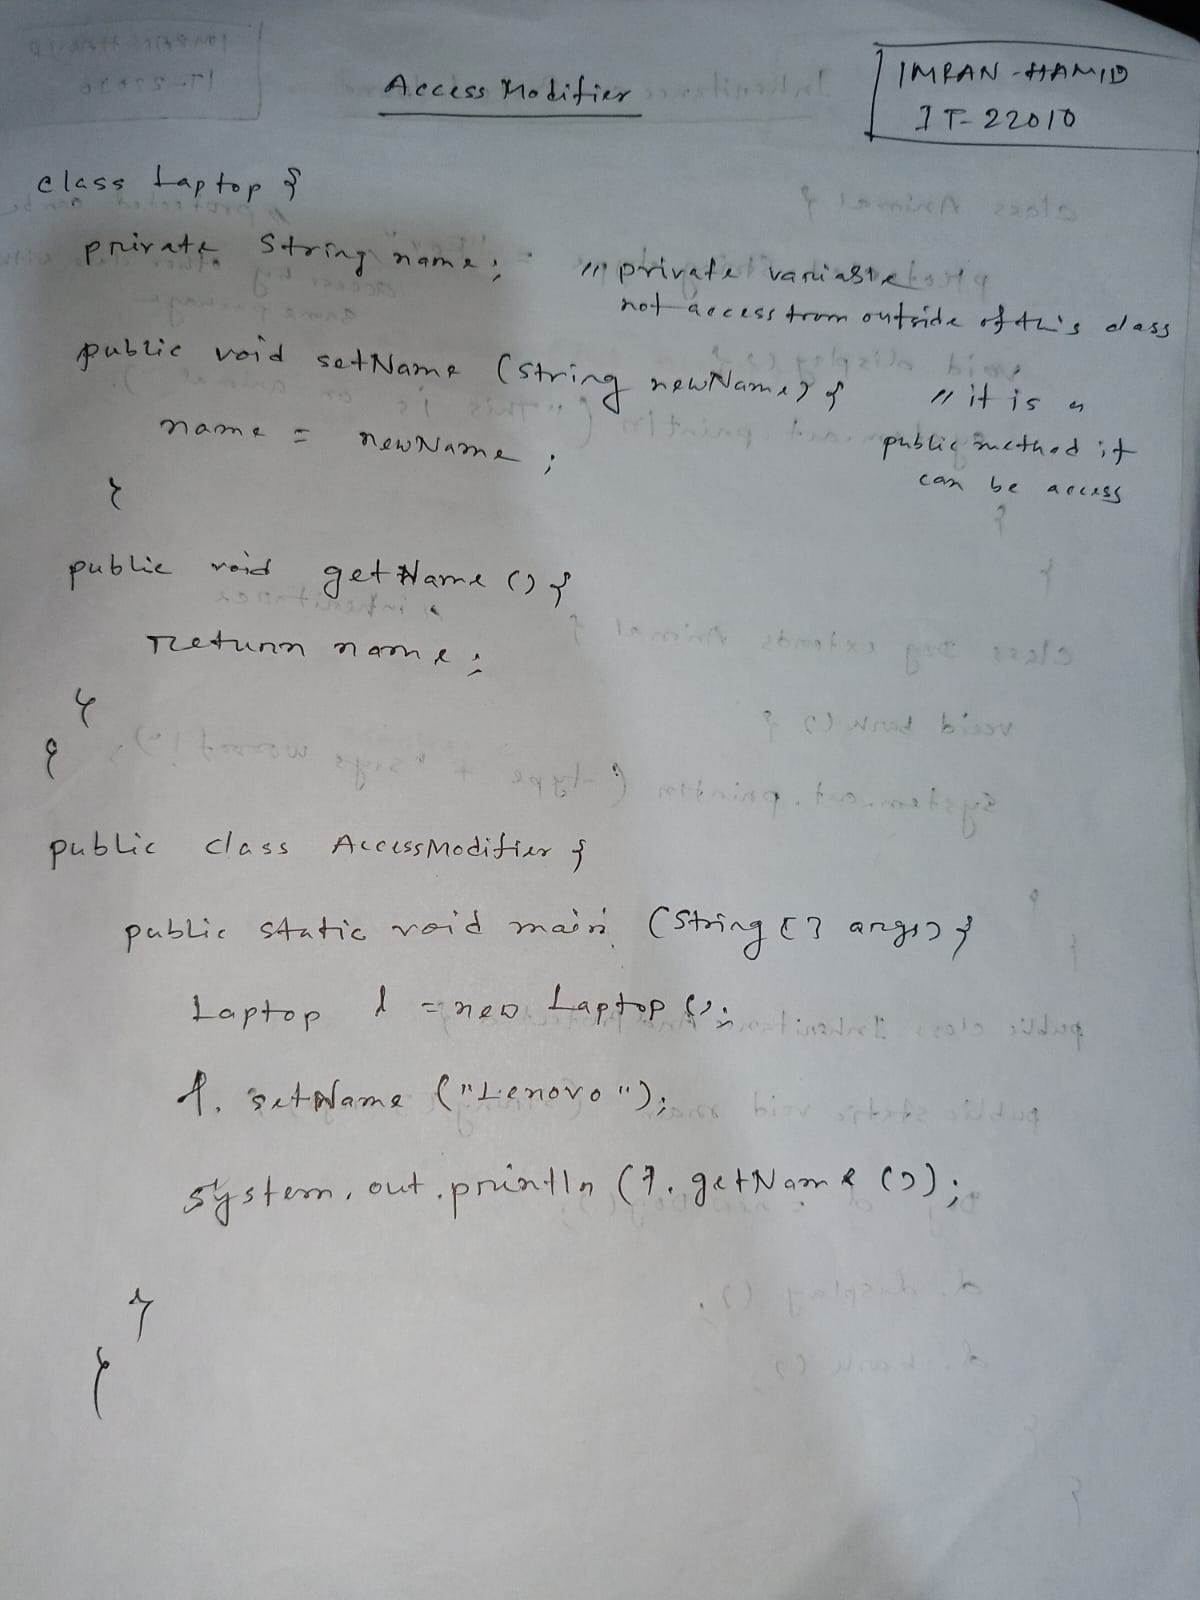 Access Modifier
IMRAN-HAMID
IT-22010
class Laptop {
private String name; // private variable
not access from outside of this class
public void setName (String newName) { // it is a
name = newName; public method it
can be access
}
public void getName () {
return name;
}
}
public class AccessModifier {
public static void main (String [] args) {
Laptop l = new Laptop ();
l. setName ("Lenovo");
system. out. println (l. getName ());
}
}